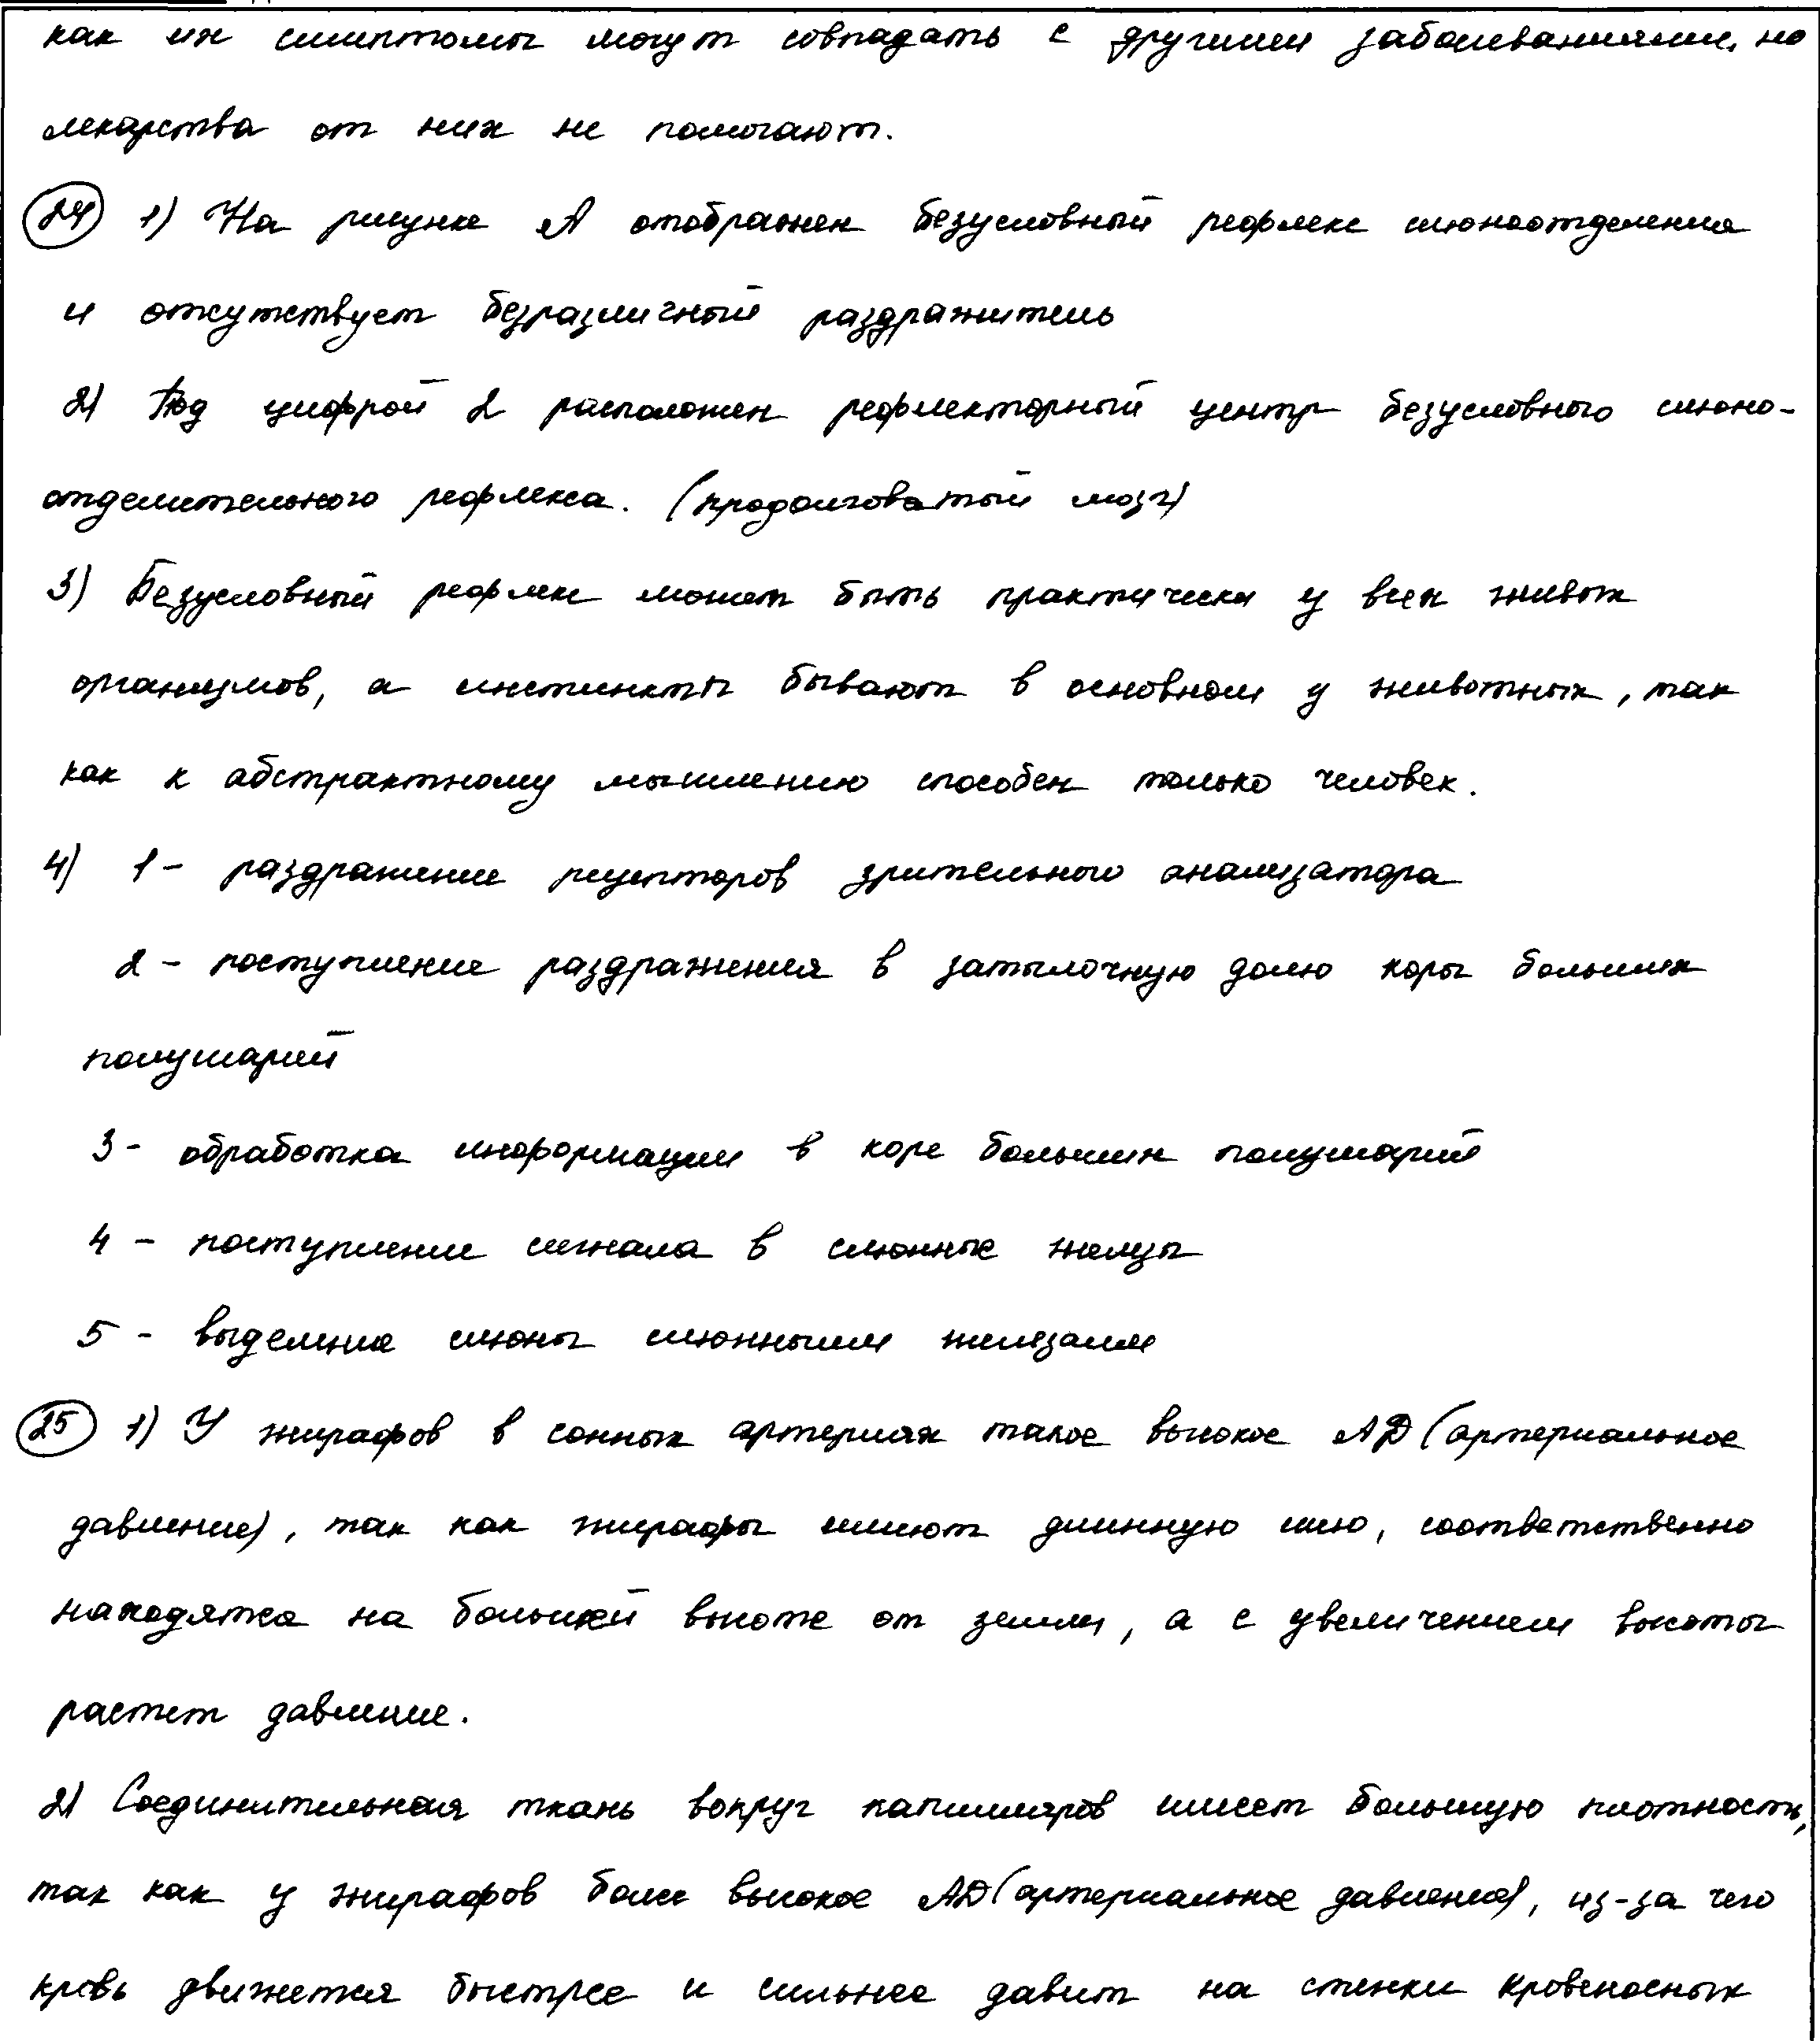 как их симптомы могут совпадать с другими заболеваниями, но
лекарства от них не помогают.
24 1) На рисунке А отображен безусловный рефлекс слюноотделения
и отсутствует безразличный раздражитель
2) Под цифрой 2 расположен рефлекторный центр безусловного слюно-
отделительного рефлекса. (продолговатый мозг)
3) Безусловный рефлекс может быть практически у всех живых
организмов, а инстинкты бывают в основном у животных, так
как к абстрактному мышлению способен только человек.
4) 1 - раздражение рецепторов зрительного анализатора
2 - поступление раздражения в затылочную долю коры больших
полушарий
3 - обработка информации в коре больших полушарий
4 - поступление сигнала в слюнные железы
5 - выделение слюны слюнными железами
25 1) У жирафов в сонных артериях такое высокое АД (артериальное
давление), так как жирафы имеют длинную шею, соответственно
находятся на большей высоте от земли, а с увеличением высоты
растет давление.
2) Соединительная ткань вокруг капилляров имеет большую плотность,
так как у жирафов более высокое АД (артериальное давление), из-за чего
кровь движется быстрее и сильнее давит на стенки кровеносных